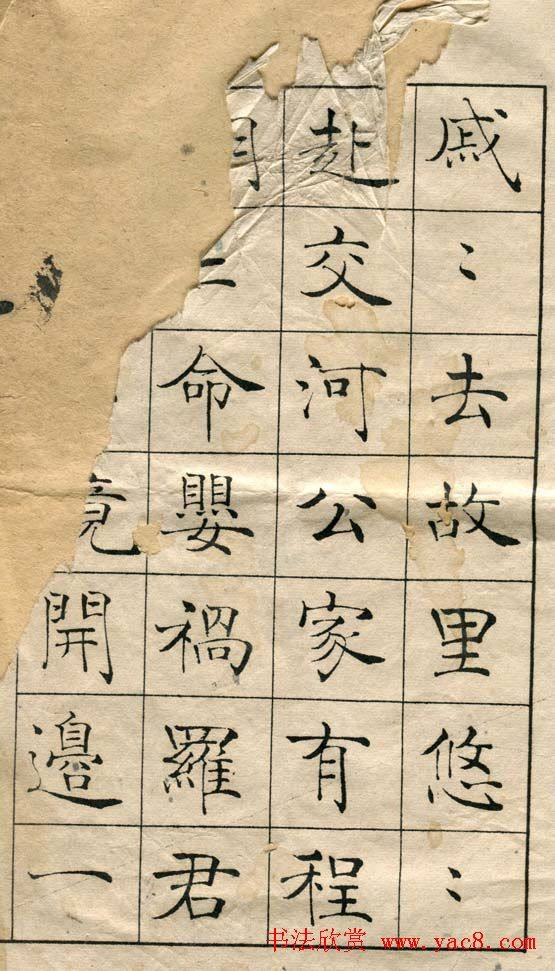 戚〻去故里悠〻
赴交河公家有程
命嬰禍羅君
開邊一
书法欣赏 www.yac8.com